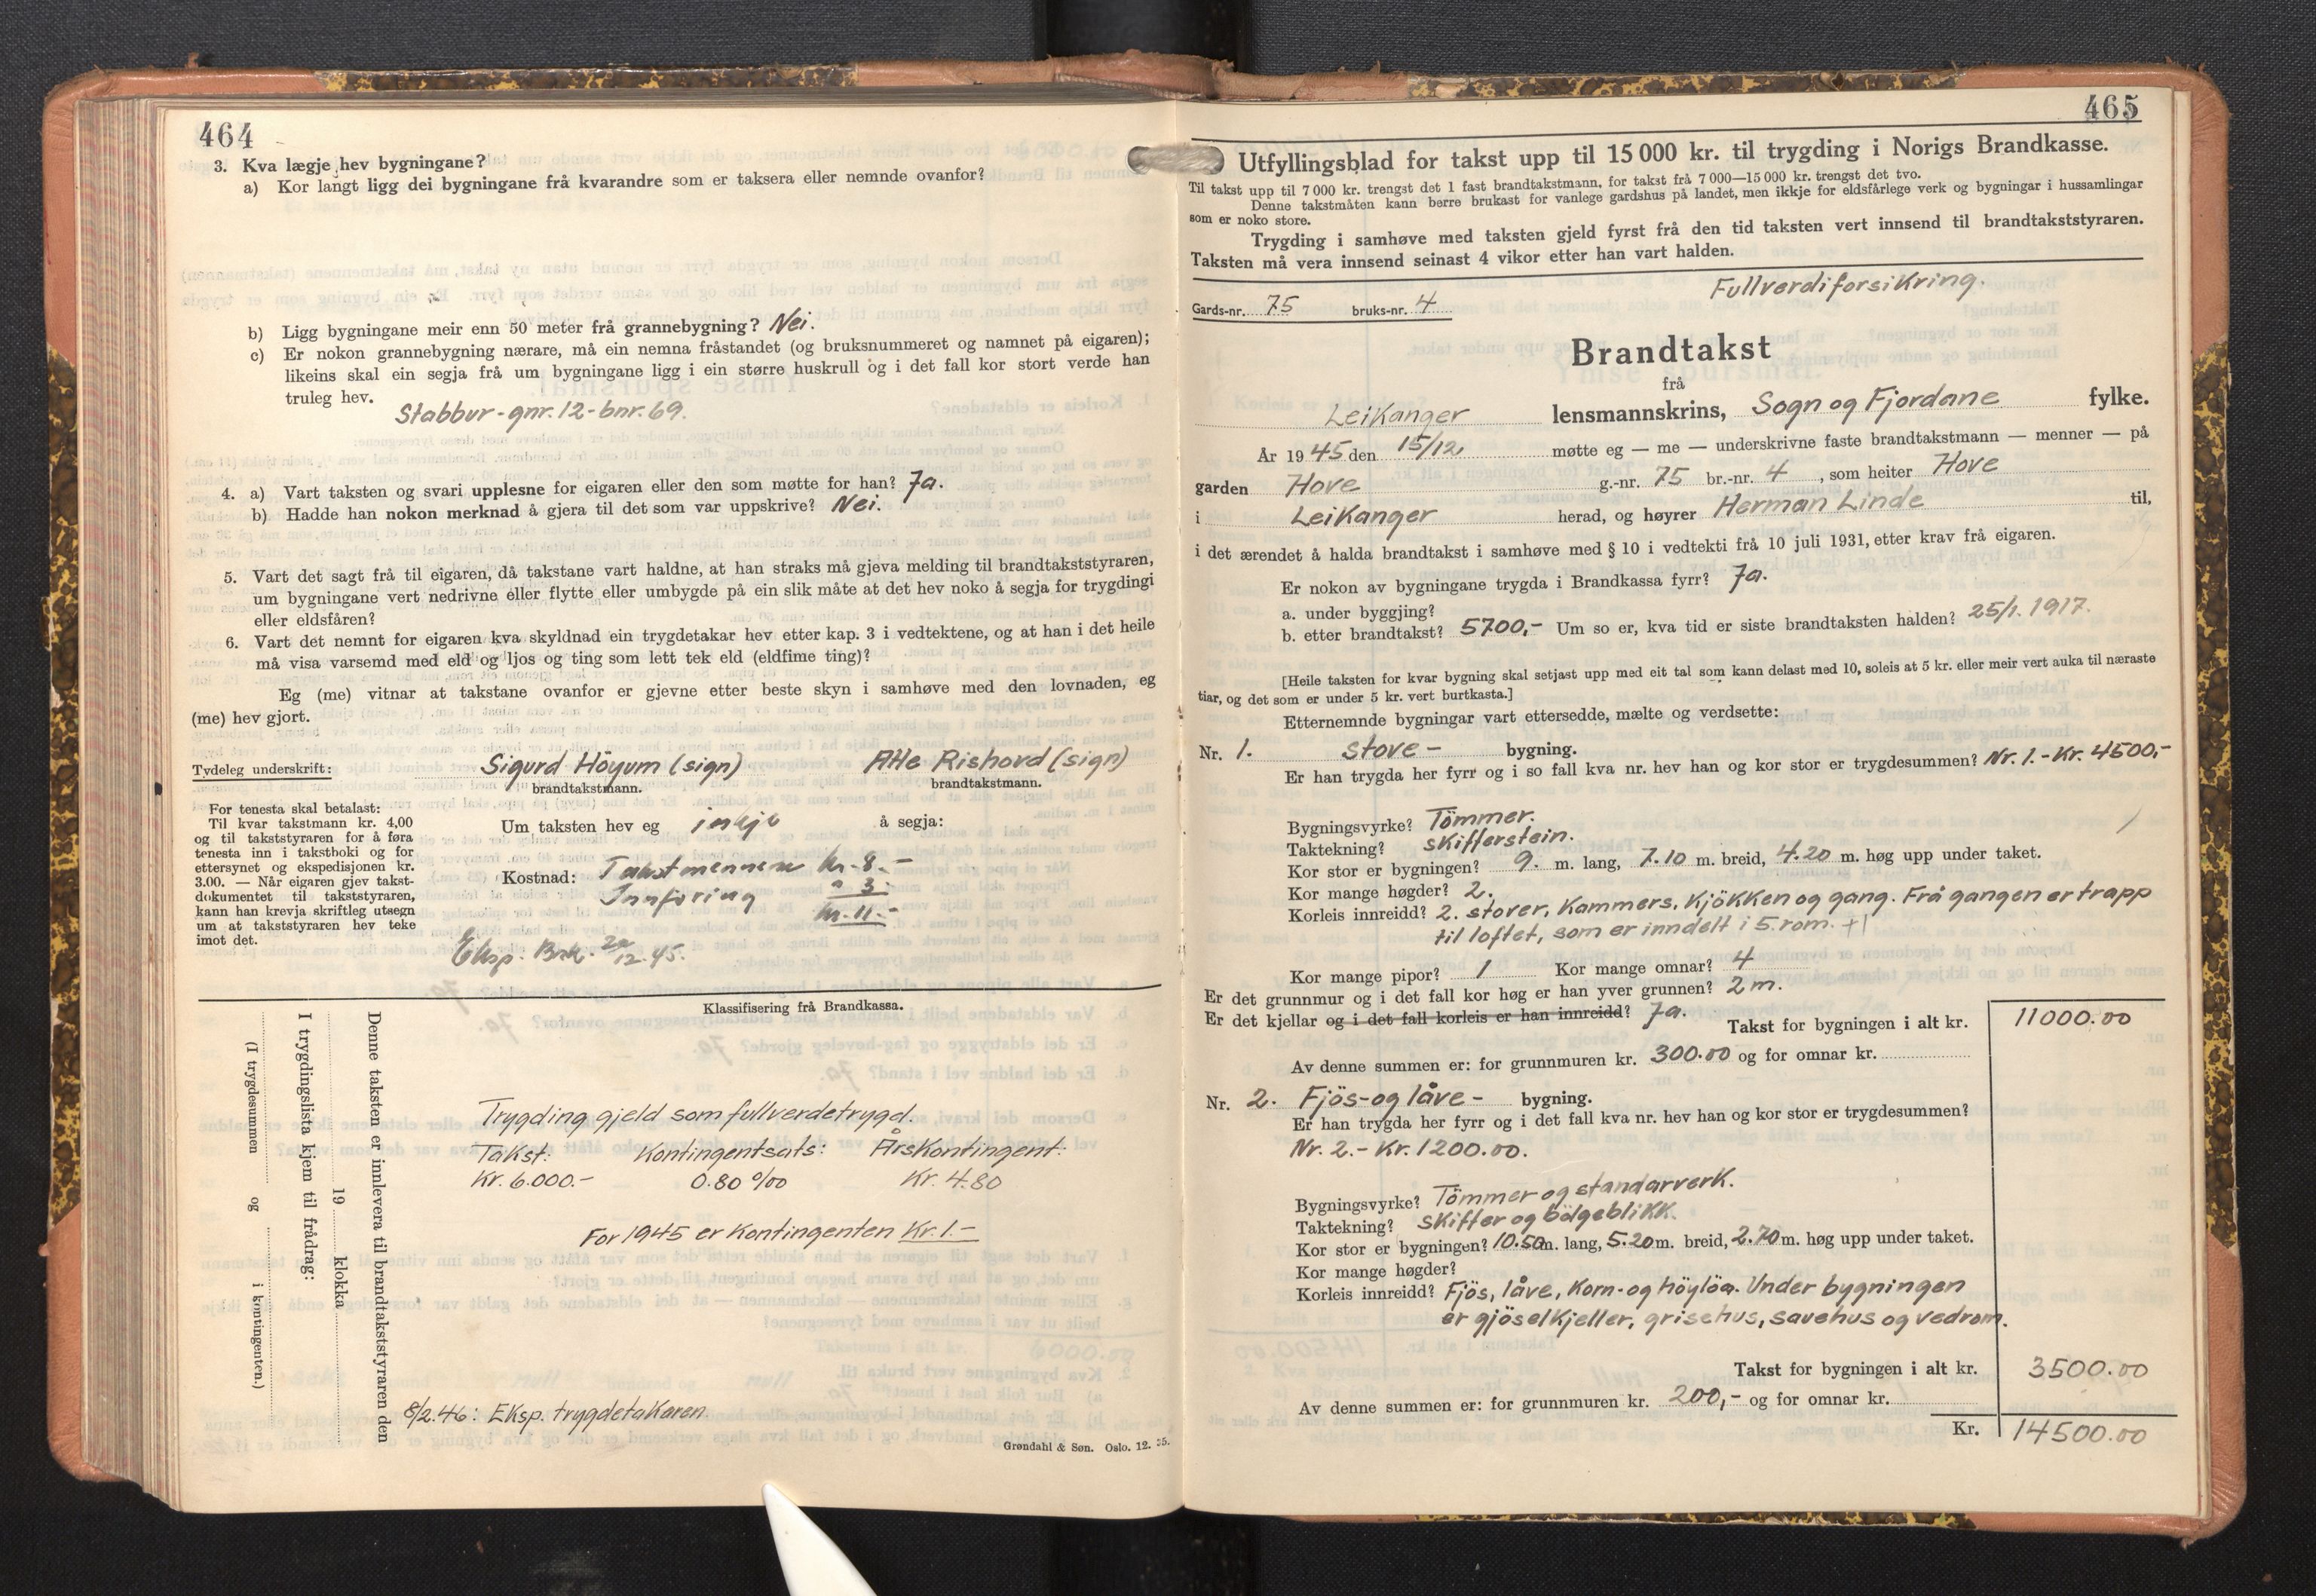 464
3. Kva lægje hev bygningane?
a) Kor langt ligg dei bygningane frå kvarandre som er taksera eller nemnde ovanfor?
b) Ligg bygningane meir enn 50 meter frå grannebygning? Nei.
c) Er nokon grannebygning nærare, må ein nemna fråstandet (og bruksnummeret og namnet på eigaren);
likeins skal ein segja frå um bygningane ligg i ein større huskrull og i det fall kor stort verde han
truleg hev.
Stabbur - gnr. 12 - bnr. 69.
4. a) Vart taksten og svari upplesne for eigaren eller den som møtte for han? Ja.
b) Hadde han nokon merknad å gjera til det som var uppskrive? Nei.
5. Vart det sagt frå til eigaren, då takstane vart haldne, at han straks må gjeva melding til brandtakststyraren,
um bygningane vert nedrivne eller flytte eller umbygde på ein slik måte at det hev noko å segja for trygdingi
eller eldsfåren?
6. Vart det nemnt for eigaren kva skyldnad ein trygdetakar hev etter kap. 3 i vedtektene, og at han i det heile
må visa varsemd med eld og ljos og ting som lett tek eld (eldfime ting)?
Eg (me) vitnar at takstane ovanfor er gjevne etter beste skyn i samhøve med den lovnaden, eg
(me) hev gjort.
Tydeleg underskrift: Sigurd Höyum (sign) Atle Rishovd (sign)
brandtakstmann. brandtakstmann.
For tenesta skal betalast:
Til kvar takstmann kr. 4,00
og til takststyraren for å føra
tenesta inn i takstboki og for
ettersynet og ekspedisjonen kr.
3.00. — Når eigaren gjev takst-
dokumentet til takststyraren,
kann han krevja skriftleg utsegn
um at takststyraren hev teke
imot det.
Um taksten hev eg inkje å segja:
Kostnad: Takstmennene kr. 8.-
Innföring " 3.
kr. 11.-
Eksp. Brk. 12.45.
Klassifisering frå Brandkassa.
Denne taksten er innlevera til brandtakststyraren den
19 klokka
I trygdingslista kjem til frådrag:
(I trygdesummen og i kontingenten.)
Trygding gjeld som fullverdetrygd.
Takst: Kontingentsats: Årskontingent:
Kr. 6.000.- 0.80 0/00 Kr. 4.80
For 1945 er kontingenten Kr. 1.-
8/2.46: Eksp. trygdetakaren.
Grøndahl & Søn. Oslo. 12. 35.
465
Utfyllingsblad for takst upp til 15 000 kr. til trygding i Norigs Brandkasse.
Til takst upp til 7 000 kr. trengst det 1 fast brandtakstmann, for takst frå 7 000—15 000 kr. trengst det tvo.
Denne takstmåten kann berre brukast for vanlege gardshus på landet, men ikkje for eldsfårlege verk og bygningar i hussamlingar
som er noko store.
Trygding i samhøve med taksten gjeld fyrst frå den tid taksten vert innsend til brandtakststyraren.
Taksten må vera innsend seinast 4 vikor etter han vart halden.
Fullverdiforsikring.
Gards-nr. 75 bruks-nr. 4
Brandtakst
frå
Leikanger lensmannskrins, Sogn og Fjordane fylke.
År 1945 den 15/12. møtte eg — me — underskrivne faste brandtakstmann — menner — på
garden Hove g.-nr. 75 br.-nr. 4, som heiter Hove
i Leikanger herad, og høyrer Herman Linde til,
i det ærendet å halda brandtakst i samhøve med § 10 i vedtekti frå 10 juli 1931, etter krav frå eigaren.
Er nokon av bygningane trygda i Brandkassa fyrr? Ja.
a. under byggjing?
b. etter brandtakst? 5700,- Um so er, kva tid er siste brandtaksten halden? 25/1. 1917.
[Heile taksten for kvar bygning skal setjast upp med eit tal som kann delast med 10, soleis at 5 kr. eller meir vert auka til næraste
tiar, og det som er under 5 kr. vert burtkasta.]
Etternemnde bygningar vart ettersedde, mælte og verdsette:
Nr. 1. stove- bygning.
Er han trygda her fyrr og i so fall kva nr. hev han og kor stor er trygdesummen? Nr. 1. - Kr. 4500,-
Bygningsvyrke? Tömmer.
Taktekning? skifferstein.
Kor stor er bygningen? 9. m. lang, 7.10 m. breid, 4.20 m. høg upp under taket.
Kor mange høgder? 2.
Korleis innreidd? 2. stover, Kammers, Kjökken og gang. Frå gangen er trapp
til loftet, som er inndelt i 5. rom. +1
Kor mange pipor? 1 Kor mange omnar? 4
Er det grunnmur og i det fall kor høg er han yver grunnen? 2 m.
Er det kjellar og i det fall korleis er han innreidd? Ja.
Takst for bygningen i alt kr. 11000.00
Av denne summen er: for grunnmuren kr. 300.00 og for omnar kr.
Nr. 2. Fjös- og låve- bygning.
Er han trygda her fyrr og i det fall kva nr. hev han og kor stor er trygdesummen?
Nr. 2. - Kr. 1200.00.
Bygningsvyrke? Tömmer og standarverk.
Taktekning? Skiffer og bölgeblikk.
Kor stor er bygningen? 10.50 m. lang, 5.20 m. breid, 2.70 m. høg upp under taket.
Kor mange høgder?
Korleis innreidd? Fjös, låve, korn- og höylöa. Under bygningen
er gjöselkjeller, grisehus, savehus og vedrom.
Takst for bygningen i alt kr. 3500.00
Av denne summen er: for grunnmuren kr. 200,- og for omnar kr.
Kr. 14500.00